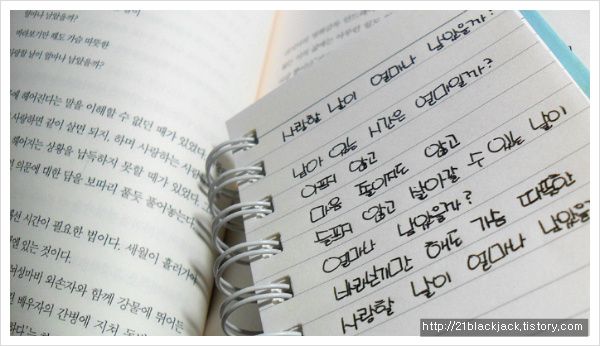 얼마나 남았을까?
바라보기만 해도 가슴 따뜻한
날이 얼마나 남았을까?
헤어진다는 말을 이해할 수 없던 때가 있었다.
사랑하면 같이 살면 되지, 하며 사랑하는 사람
헤어지는 상황을 납득하지 못할 때가 있었다.
의문에 대한 답을 보따리 풀듯 풀어놓는다.
시간이 필요한 법이다. 세월이
있는 것이다.
외손자와 함께 강물에 뛰어든
배우자의 간병에 지쳐
사랑할 날이 얼마나 남았을까?
남아 있는 시간은 얼마일까?
아프지 않고
마음 졸이지도 않고
슬프지 않고 살아갈 수 있는 날이
얼마나 남았을까?
바라보기만 해도 가슴 따뜻한
사랑할 날이 얼마나 남았을
http://21blackjack.tistory.com/